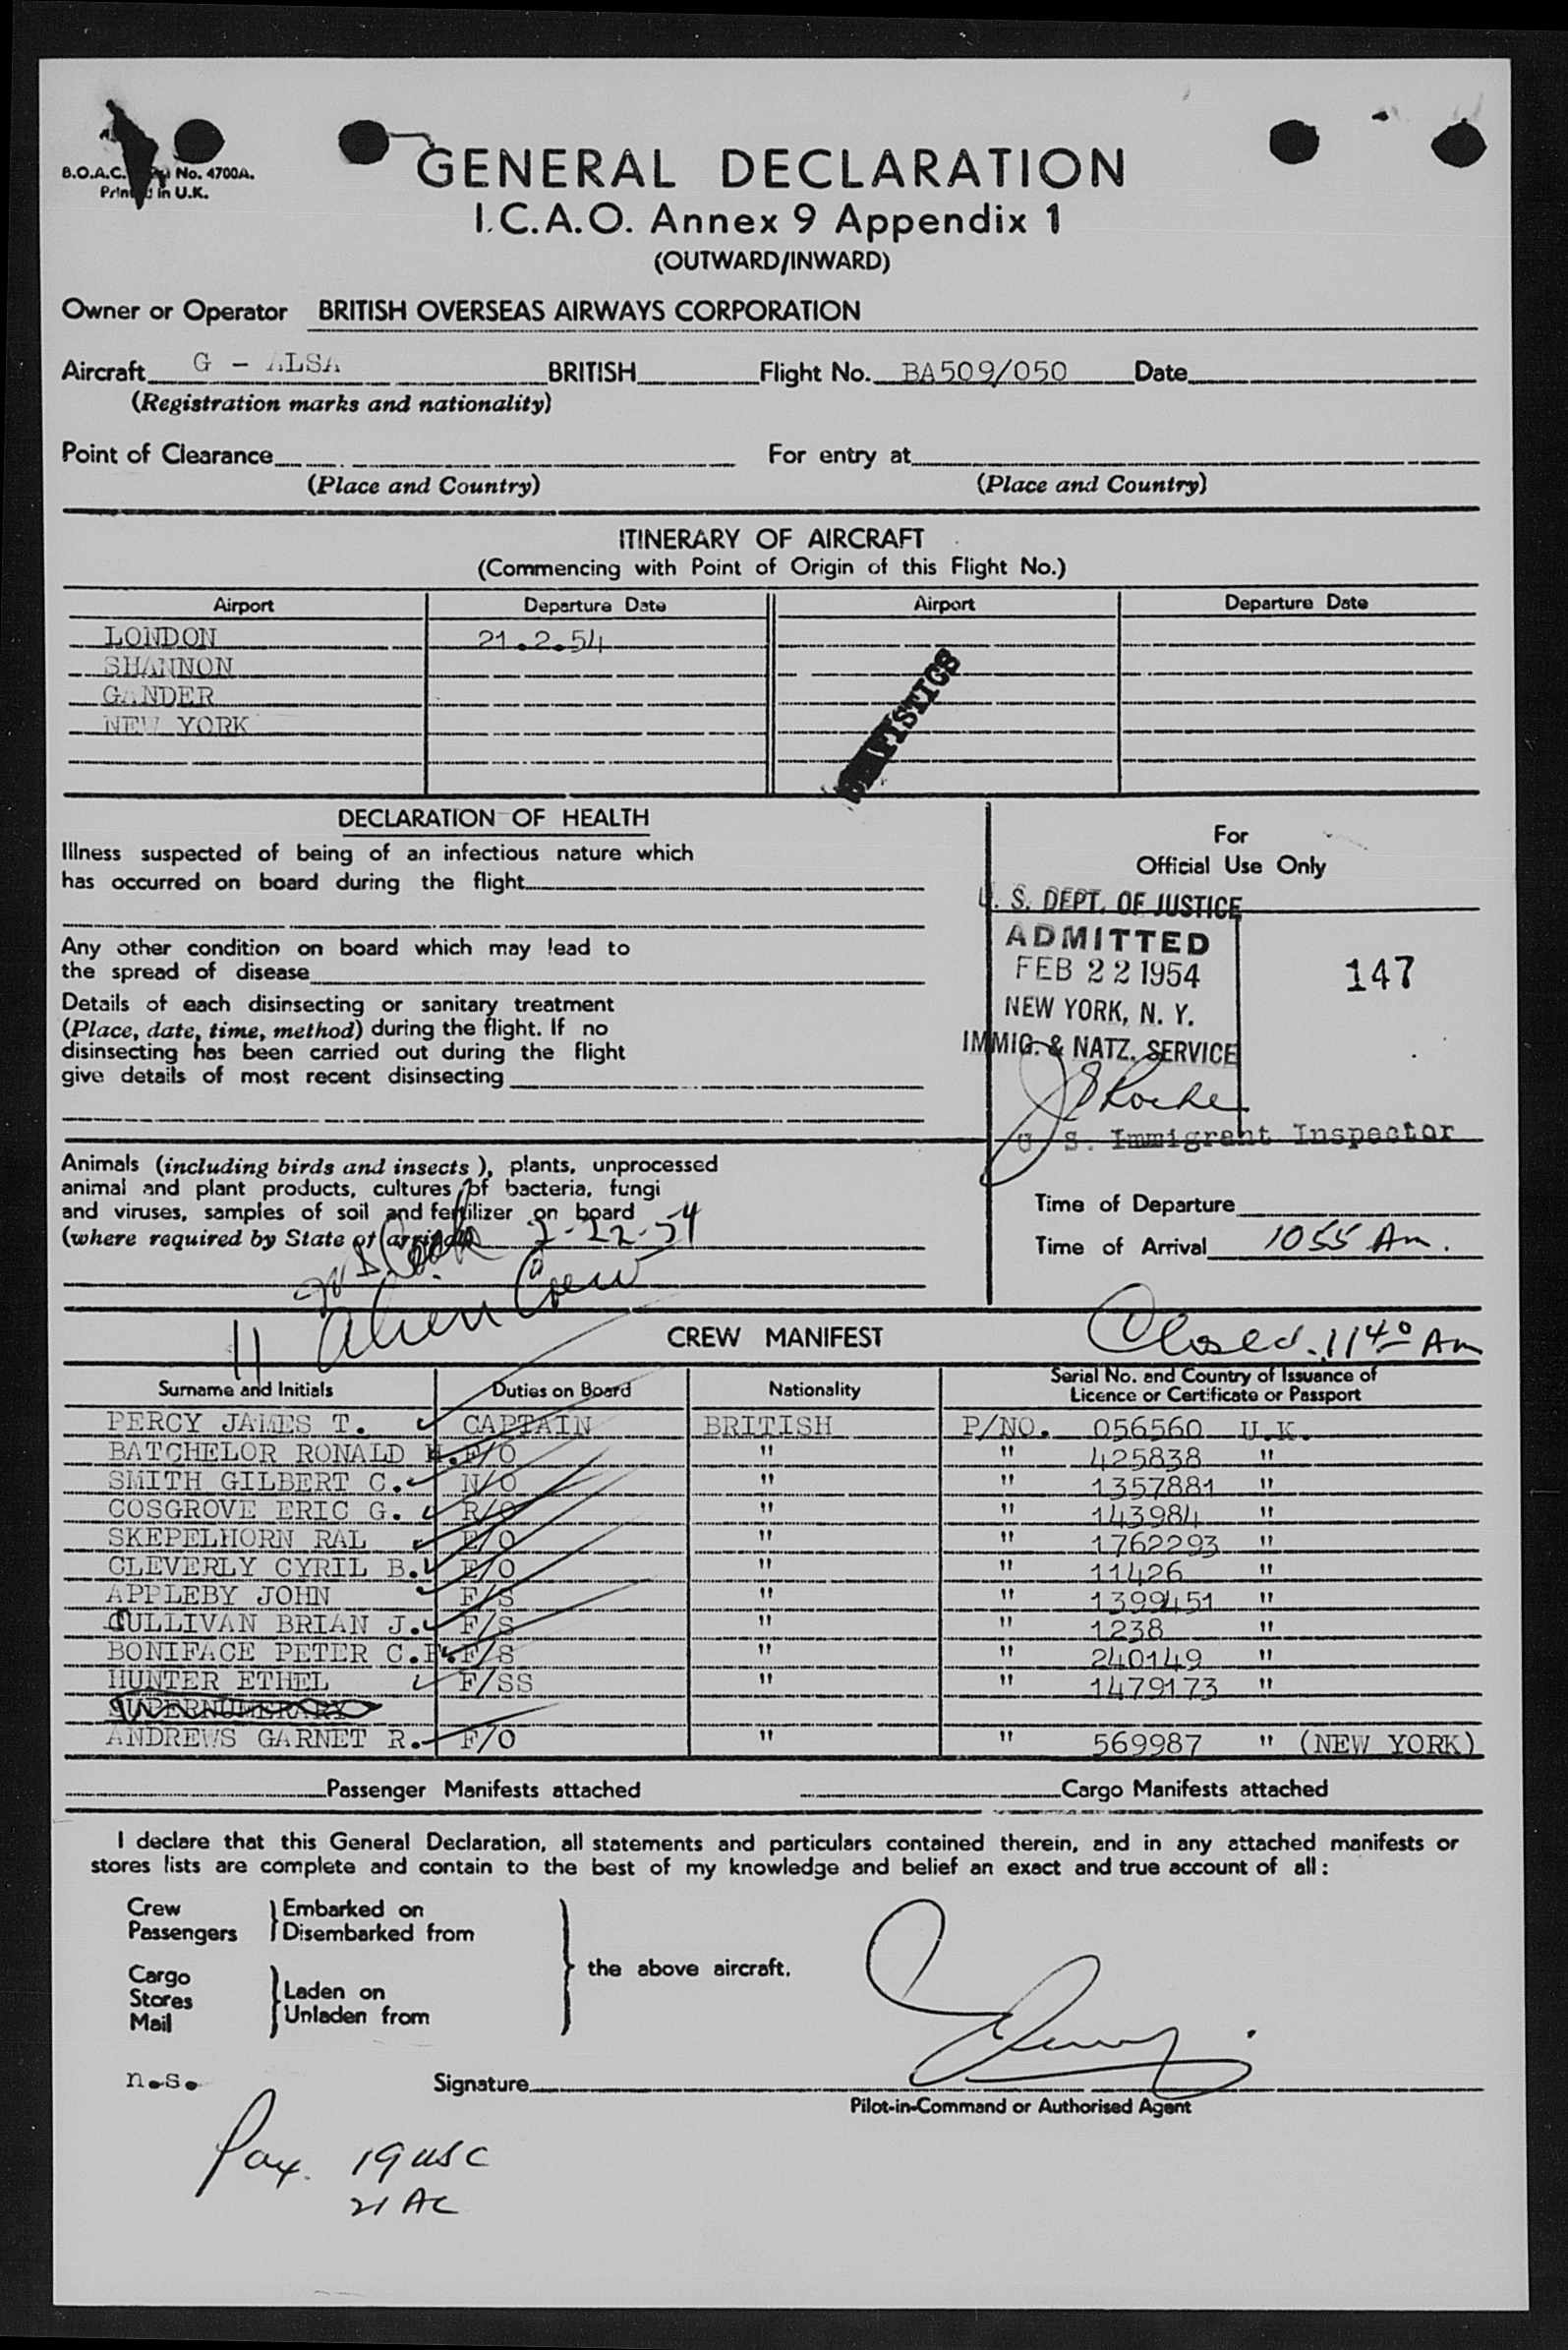 B.O.A.C. No. 4700A.
Printed in U.K.
GENERAL DECLARATION
I.C.A.O. Annex 9 Appendix 1
(OUTWARD/INWARD)
Owner or Operator BRITISH OVERSEAS AIRWAYS CORPORATION
Aircraft G - ALSA BRITISH Flight No. BA509/050 Date
(Registration marks and nationality)
Point of Clearance For entry at
(Place and Country) (Place and Country)
ITINERARY OF AIRCRAFT
(Commencing with Point of Origin of this Flight No.)
Airport Departure Date Airport Departure Date
LONDON 21.2.54
SHANNON
GANDER
NEW YORK
STATISTICS
DECLARATION OF HEALTH
Illness suspected of being of an infectious nature which
has occurred on board during the flight
Any other condition on board which may lead to
the spread of disease
Details of each disinsecting or sanitary treatment
(Place, date, time, method) during the flight. If no
disinsecting has been carried out during the flight
give details of most recent disinsecting
For
Official Use Only
U. S. DEPT. OF JUSTICE
ADMITTED
FEB 22 1954
NEW YORK, N. Y.
IMMIG. & NATZ. SERVICE
147
J Roche
U. S. Immigrant Inspector
Animals (including birds and insects), plants, unprocessed
animal and plant products, cultures of bacteria, fungi
and viruses, samples of soil and fertilizer on board
(where required by State of arrival)
2-22-54
Time of Departure
Time of Arrival 1055 Am.
11 alien Crew
CREW MANIFEST
Closed. 1140 Am
Surname and Initials Duties on Board Nationality Serial No. and Country of Issuance of Licence or Certificate or Passport
PERCY JAMES T. CAPTAIN BRITISH P/NO. 056560 U.K.
BATCHELOR RONALD H. F/O " " 425838 "
SMITH GILBERT C. N/O " " 1357881 "
COSGROVE ERIC G. R/O " " 143984 "
SKEPELHORN RAL E/O " " 1762293 "
CLEVERLY CYRIL B. E/O " " 11426 "
APPLEBY JOHN F/S " " 1399451 "
CULLIVAN BRIAN J. F/S " " 1238 "
BONIFACE PETER C. F/S " " 240149 "
HUNTER ETHEL F/SS " " 1479173 "
SUPERNUMERARY
ANDREWS GARNET R. F/O " " 569987 " (NEW YORK)
Passenger Manifests attached Cargo Manifests attached
I declare that this General Declaration, all statements and particulars contained therein, and in any attached manifests or
stores lists are complete and contain to the best of my knowledge and belief an exact and true account of all:
Crew Embarked on
Passengers Disembarked from
the above aircraft.
Cargo
Stores Laden on
Mail Unladen from
n.s. Signature
Pilot-in-Command or Authorised Agent
Pax. 19 USC
21 AC